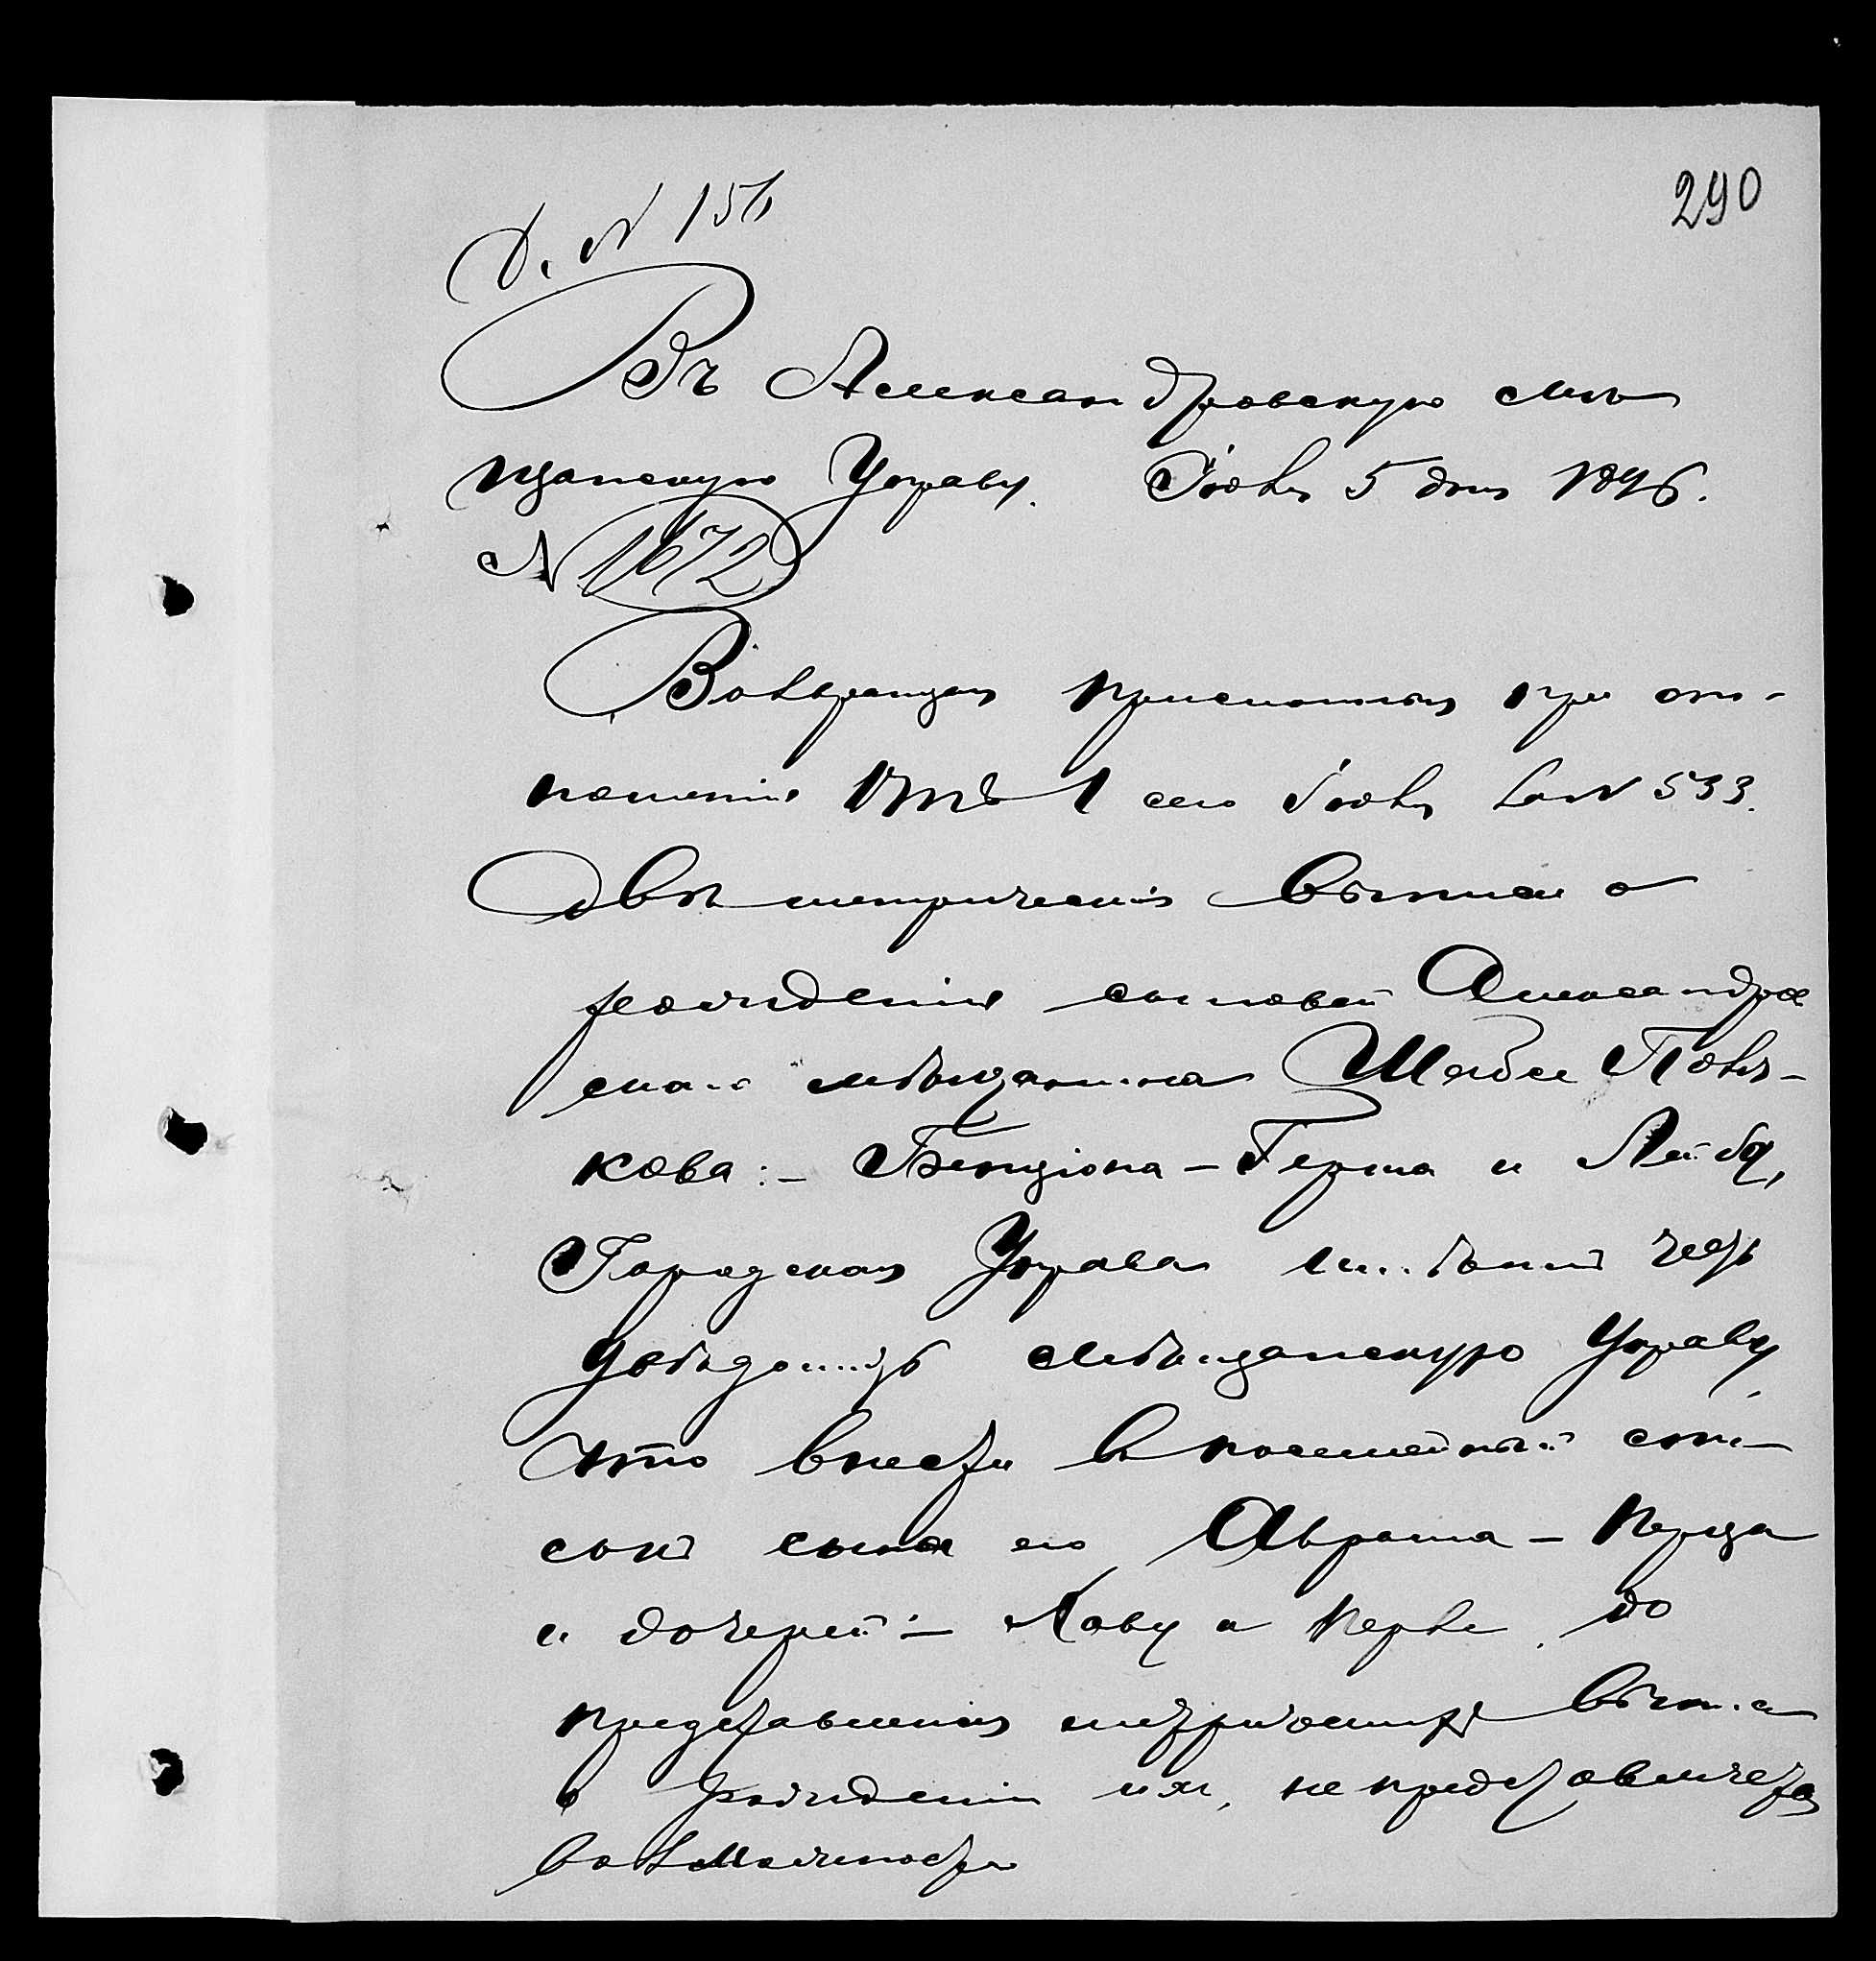 290
Д. № 156
Въ Александровскую мѣ
щанскую Управу. Іюля 5 дня 1896.
№ 1672
Возвращая присланныя при от-
ношеніи 1 сего Іюля за № 533.
двѣ метрическія выписи о
рожденіи сыновей Александров
скаго мѣщанина Шебсе Позя-
кова: - Бенціона - Герша и Лейба,
Городская Управа имѣетъ честь
увѣдомить Мѣщанскую Управу
что внести въ посемейный спи-
сокъ сына его Абрама - Перца
и дочерей: - Хаву и Перле, до
представленія метрическихъ выписей
о рожденіи ихъ, не представляется
возможности